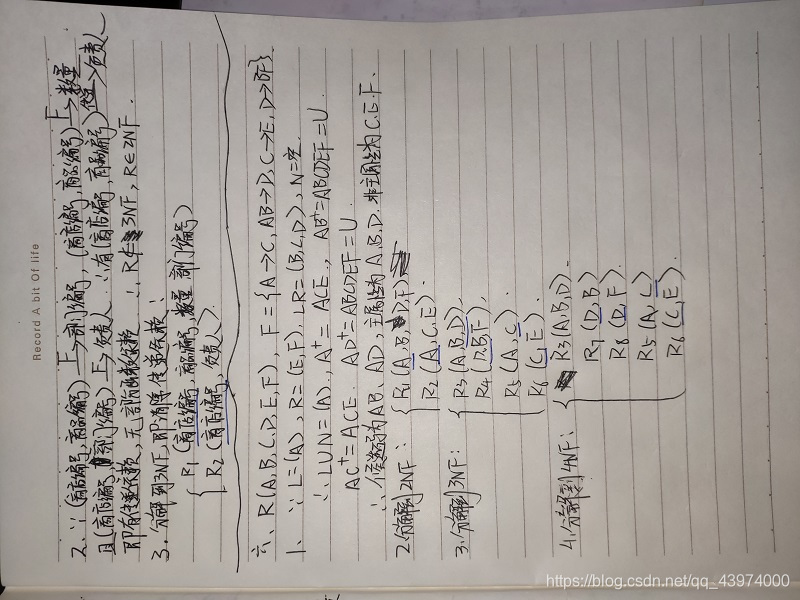 Record A bit Of life
2. ∵ (商店编号, 商品编号) F→ 部门编号, (商店编号, 商品编号) F→ 数量
且(商店编号, 部门编号) F→ 负责人. ∴有(商店编号, 商品编号) → 负责人
即有传递依赖, 无部分函数依赖 ∴ R∉3NF, R∈2NF.
3. 分解到3NF, 即消除传递依赖:
R1 (商店编号, 商品编号, 数量, 部门编号)
R2 (商店编号, 负责人).
六、R(A,B,C,D,E,F), F={A→C, AB→D, C→E, D→BF}
1. ∵ L=(A), R=(E,F). LR=(B,C,D), N=空
∴ LUN=(A), A+= ACE., AB+=ABCDEF=U
AC+=ACE. AD+=ABCDEF=U.
∴候选码为AB、AD, 主属性为A.B.D. 非主属性为C.E.F.
2. 分解到2NF: R1 (A,B,D,F)
R2 (A,C,E).
3. 分解到3NF: R3 (A,B,D).
R4 (D,B,F).
R5 (A,C)
R6 (C,E)
4. 分解到4NF: R3 (A,B,D).
R7 (D,B)
R8 (D,F).
R5 (A,C)
R6 (C,E).
https://blog.csdn.net/qq_43974000